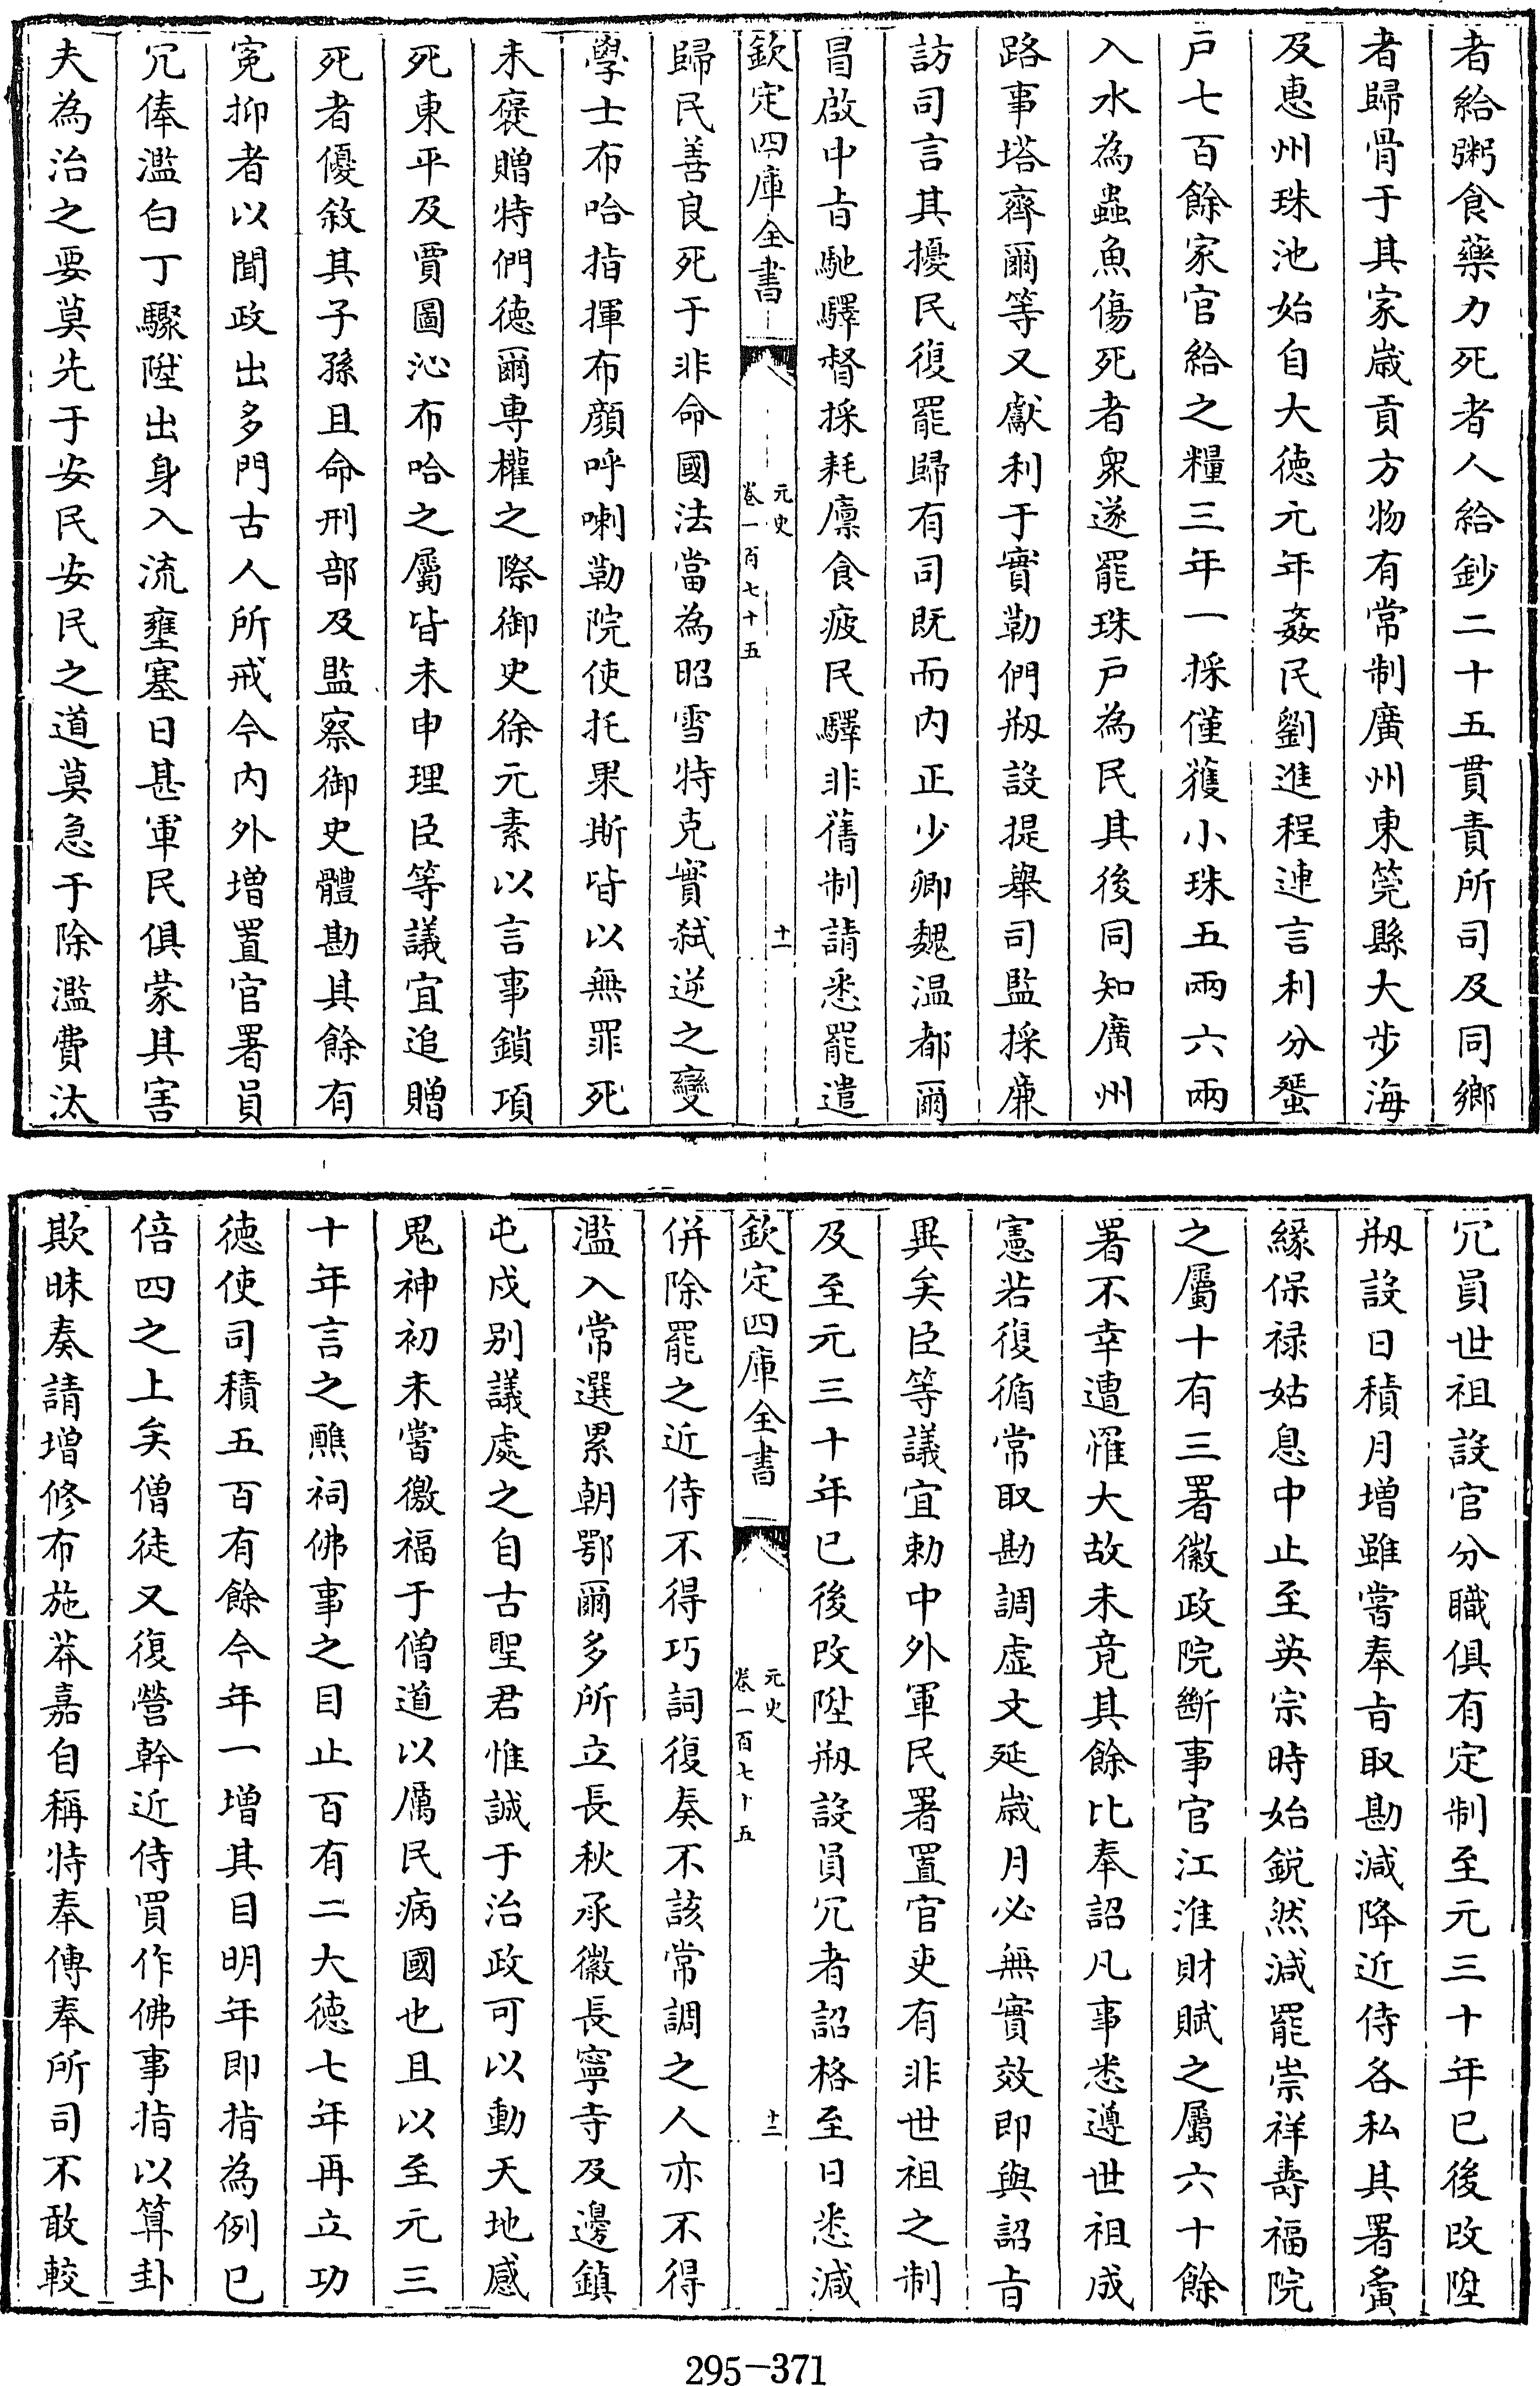 者給粥食藥力死者人給鈔二十五貫責所司及同鄉
者歸骨于其家歲貢方物有常制廣州東莞縣大步海
及惠州珠池始自大德元年姦民劉進程連言利分蜑
戸七百餘家官給之糧三年一採僅獲小珠五兩六兩
入水為蟲魚傷死者衆遂罷珠戸為民其後同知廣州
路事塔齊爾等又獻利于實勒們剏設提舉司監採廉
訪司言其擾民復罷歸有司既而内正少卿魏温都爾
冒啟中㫖馳驛督採耗廪食疲民驛非舊制請悉罷遣
欽定四庫全書
元史
卷一百七十五
十一
歸民善良死于非命國法當為昭雪特克實弑逆之變
學士布哈指揮布顔呼喇勒院使托果斯皆以無罪死
未褒贈特們徳爾専權之際御史徐元素以言事鎖項
死東平及賈圖沁布哈之屬皆未申理臣等議宜追贈
死者優敘其子孫且命刑部及監察御史體勘其餘有
寃抑者以聞政出多門古人所戒今内外增置官署員
冗俸濫白丁驟陞出身入流壅塞日甚軍民俱蒙其害
夫為治之要莫先于安民安民之道莫急于除濫費汰
冗員世祖設官分職俱有定制至元三十年已後改陞
剏設日積月增雖嘗奉㫖取勘減降近侍各私其署夤
緣保禄姑息中止至英宗時始鋭然減罷崇祥壽福院
之屬十有三署徽政院斷事官江淮財賦之屬六十餘
署不幸遭罹大故未竟其餘比奉詔凡事悉遵世祖成
憲若復循常取勘調虚文延歲月必無實效即與詔㫖
異矣臣等議宜勅中外軍民署置官吏有非世祖之制
及至元三十年已後改陞剏設員冗者詔格至日悉減
欽定四庫全書
元史
卷一百七十五
十二
併除罷之近侍不得巧詞復奏不該常調之人亦不得
濫入常選累朝鄂爾多所立長秋承徽長寧寺及邊鎮
屯戍别議處之自古聖君惟誠于治政可以動天地感
鬼神初未嘗徼福于僧道以厲民病國也且以至元三
十年言之醮祠佛事之目止百有二大德七年再立功
德使司積五百有餘今年一增其目明年即指為例已
倍四之上矣僧徒又復營幹近侍買作佛事指以算卦
欺昧奏請增修布施莽嘉自稱特奉傳奉所司不敢較
295-371